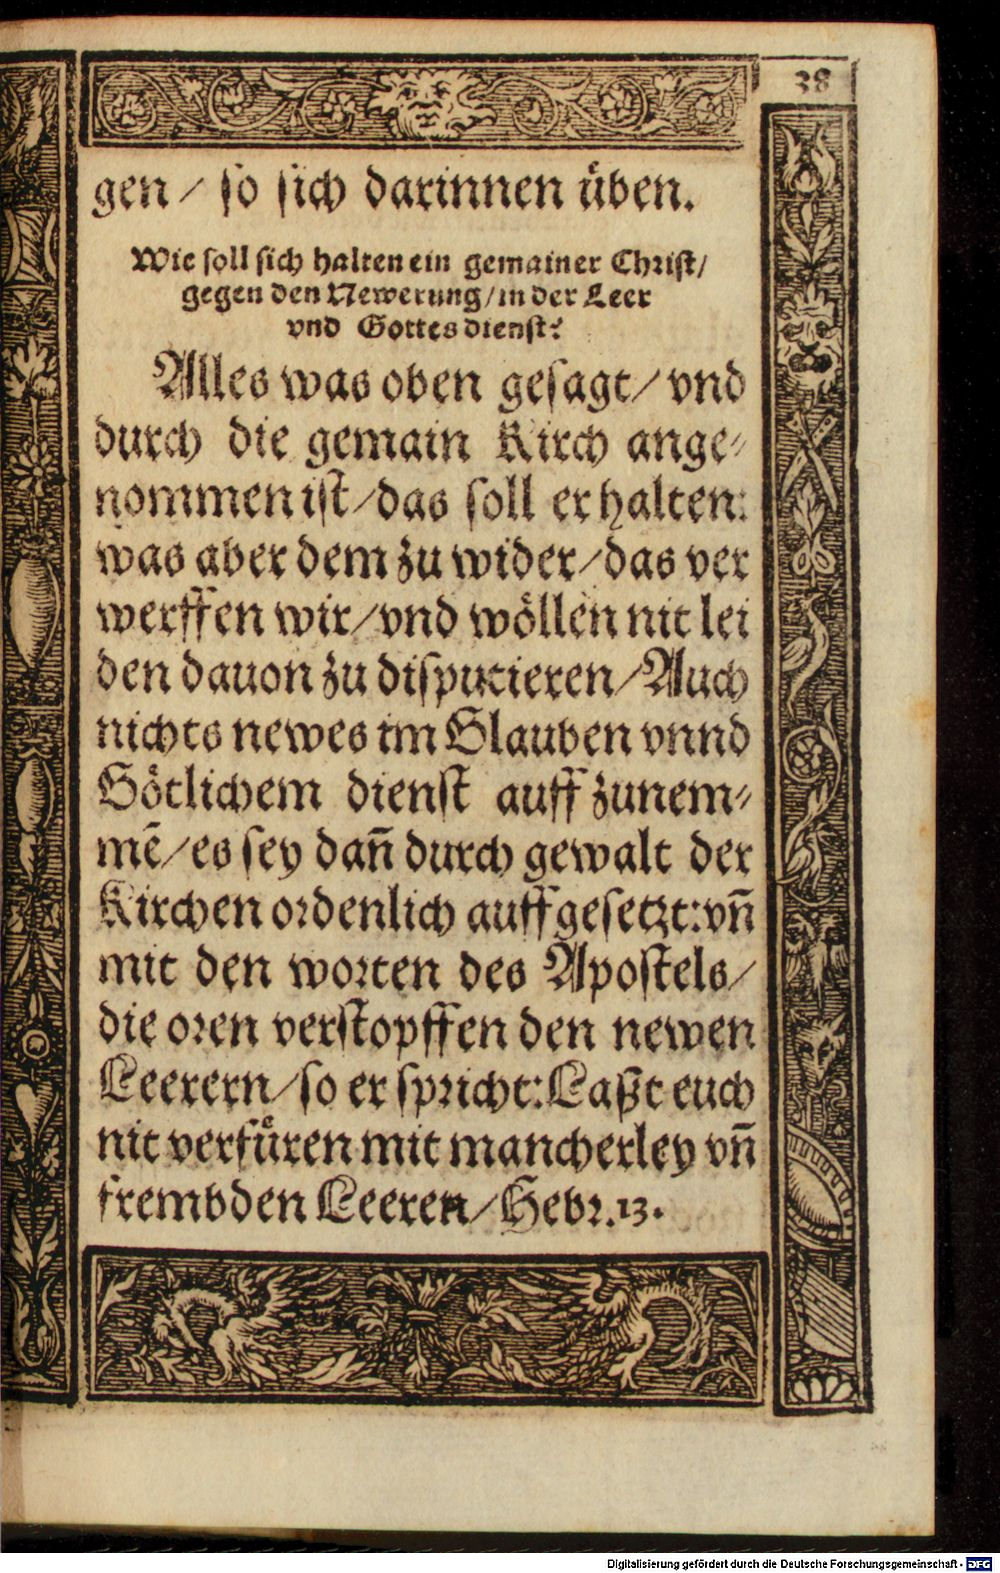 38
gen / so sich darinnen üben.
Wie soll sich halten ein gemainer Christ/
gegen den Newerung/in der Leer
vnd Gottes dienst?
Alles was oben gesagt/ vnd
durch die gemain Kirch ange-
nommen ist/das soll er halten:
was aber dem zu wider/das ver
werffen wir/vnd wöllen nit lei
den dauon zu disputieren/Auch
nichts newes im Glauben vnnd
Götlichem dienst auff zunem-
mē/es sey dañ durch gewalt der
Kirchen ordenlich auffgesetzt:vñ
mit den worten des Apostels/
die oren verstopffen den newen
Leerern/so er spricht:Laßt euch
nit verfüren mit mancherley vñ
frembden Leeren/Hebr.13.
Digitalisierung gefördert durch die Deutsche Forschungsgemeinschaft - DFG